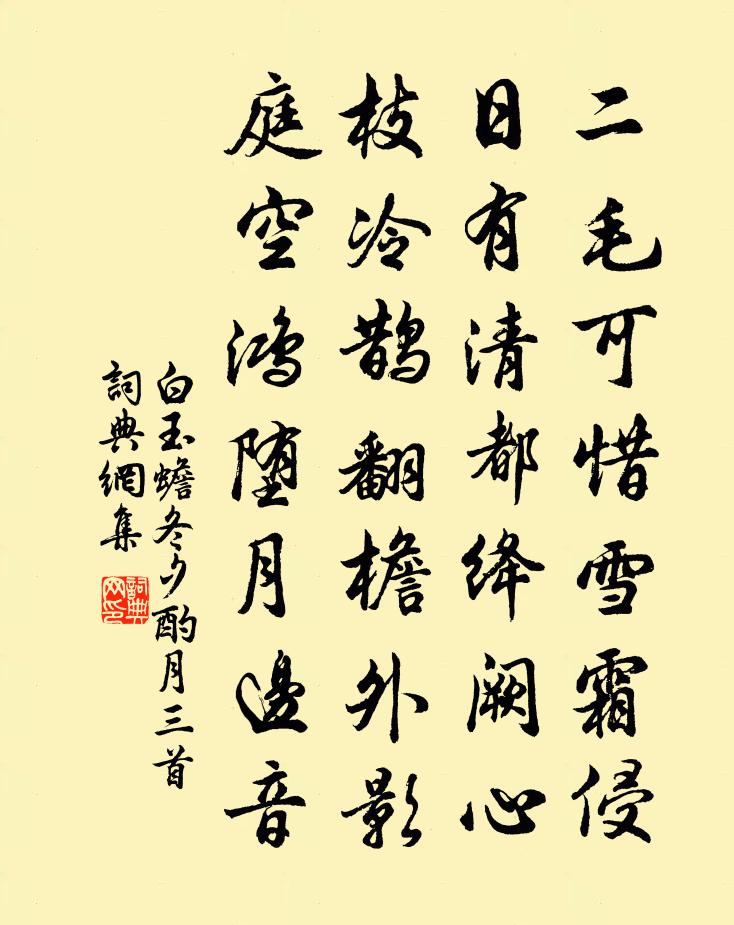 二毛可惜雪霜侵
日有清都绛阙心
枝冷鹊翻檐外影
庭空鸿堕月邊音
白玉蟾冬夕酌月三首
詞典網集
詞典網印